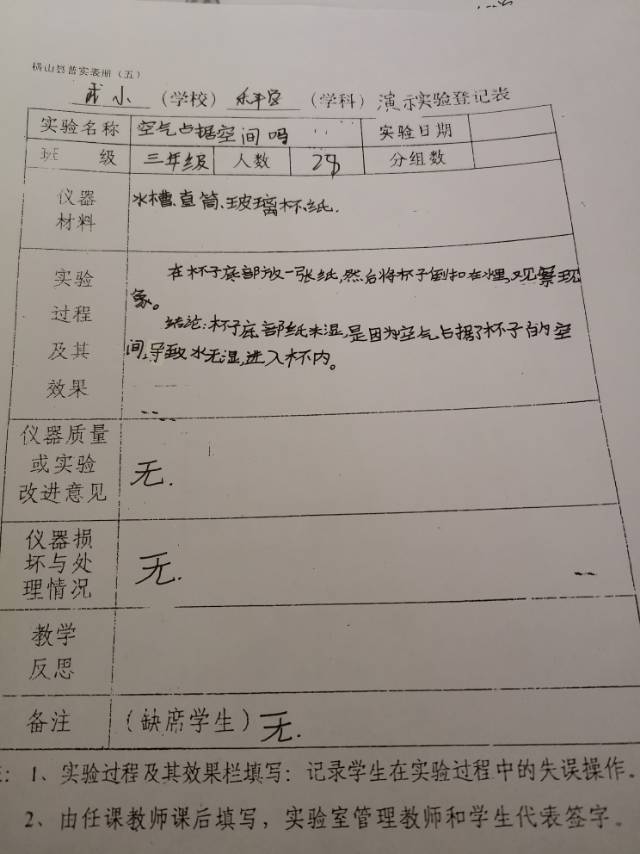 横山县普实表册（五）
小（学校）（学科）演示实验登记表
实验名称 空气占据空间吗 实验日期
班 级 三年级 人数 28 分组数
仪器 水槽、直筒、玻璃杯、纸.
材料
实验 在杯子底部放一张纸,然后将杯子倒扣在水里,观察现
过程 象。
及其 结论:杯子底部纸未湿,是因为空气占据了杯子的空
效果 间,导致水无湿,进入杯内。
仪器质量
或实验 无.
改进意见
仪器损
坏与处 无.
理情况
教学
反思
备注 （缺席学生）无.
：1、实验过程及其效果栏填写：记录学生在实验过程中的失误操作。
2、由任课教师课后填写，实验室管理教师和学生代表签字。